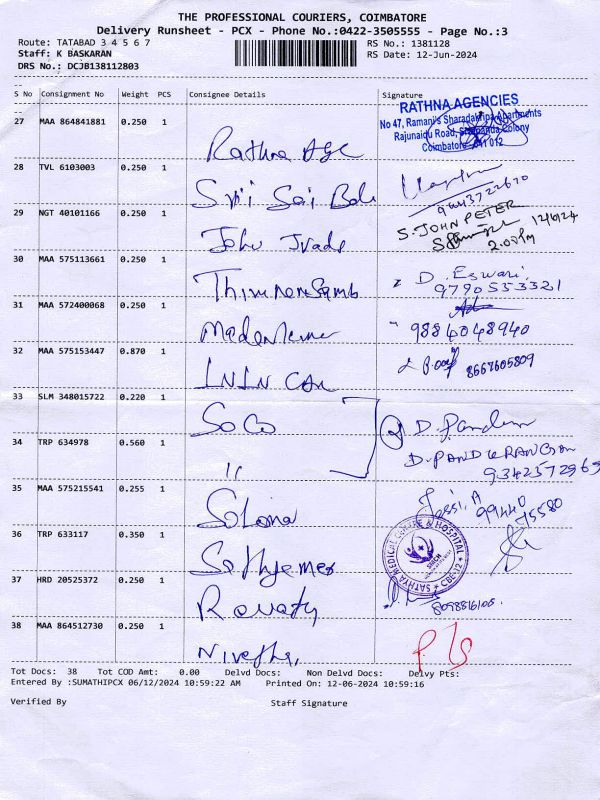 THE PROFESSIONAL COURIERS, COIMBATORE
Delivery Runsheet - PCX - Phone No.:0422-3505555 - Page No.:3
Route: TATABAD 3 4 5 6 7
RS No.: 1381128
Staff: K BASKARAN
RS Date: 12-Jun-2024
DRS No.: DCJB138112803
S No Consignment No Weight PCS Consignee Details Signature
RATHNA AGENCIES
No 47, Ramani's Sharadakripa Apartments
Rajunaidu Road, Colony
Coimbatore 641 012
27 MAA 864841881 0.250 1
Rathna Age
28 TVL 6103003 0.250 1
Sri Sai Bala
29 NGT 40101166 0.250 1
S. JOHN PETER 12/6/24
2.00 Pm
John
30 MAA 575113661 0.250 1
D. Eswari
9790553321
31 MAA 572400068 0.250 1
9884048940
32 MAA 575153447 0.870 1
8667605809
33 SLM 348015722 0.220 1
SoCo
34 TRP 634978 0.560 1
"
D. PANDURANGAN
35 MAA 575215541 0.255 1
Jessi. A
99440 75580
36 TRP 633117 0.350 1
SATHYA MEDICAL CENTRE & HOSPITAL
CBE-12
37 HRD 20525372 0.250 1
Revathy
38 MAA 864512730 0.250 1
Nivetha,
Tot Docs: 38 Tot COD Amt: 0.00 Delvd Docs: Non Delvd Docs: Delvy Pts:
Entered By :SUMATHIPCX 06/12/2024 10:59:22 AM Printed On: 12-06-2024 10:59:16
Verified By Staff Signature